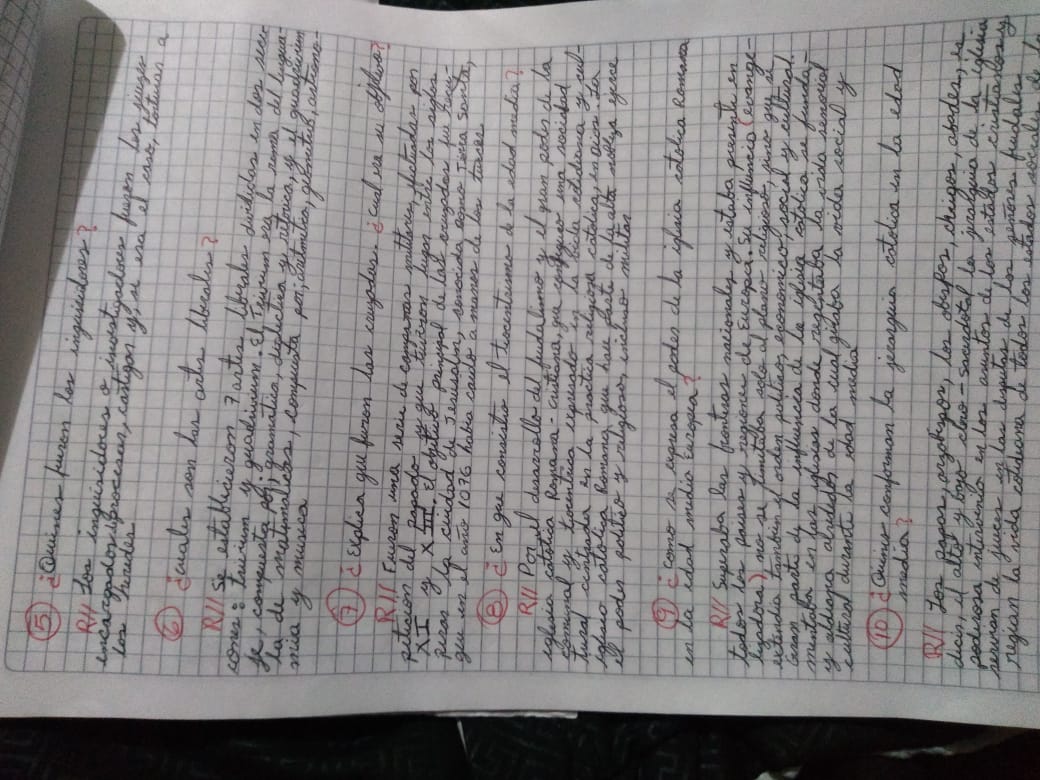 ⑤ ¿Quines furon los inquisidores?
R// Los inquisidores o investigadores furon los jueges
encargados de procesar, castigar y, si era el caso, torturar a
los herejes
⑥ ¿cuales son las artes liberales?
R// Se establicieron 7 artes liberales divididas en dos sec-
cones: trivium y quadrivium. El trivium era la rama del lengua-
je, compuesta por; gramatica, dialectica y retórica, y el quadrivium
la de matematicas, compuesta por; aritmética, geometria, astrono-
mia y musica
⑦ ¿Explica que furon las cruzadas. ¿Cual era su objetivo?
R// Fueron una serie de campañas militares, iniciadas por
peticion del papado y que tuvieron lugar entre los siglos
XI y XIII. El objetivo principal de las cruzadas fue recu-
perar la cuidad de Jerusalen, conocida como Tierra Santa,
que en el año 1076 habia caido a manos de los turcos
⑧ ¿En que consistio el teocentrismo de la edad media?
R// Por el desarrollo del feudalismo y el gran poder de la
iglesia catolica Romana - cristiana, que configuro una sociedad
comunal y teocentrica expresado en la vida cotidiana y cul-
tural centrada en la practica religiosa catolica, es decir la
iglesia catolica Romana, que hace parte de la alta nobleza ejerce
el poder politico y religioso, incluso militar
⑨ ¿como se expresa el poder de la iglesia catolica Romana
en la edad media Europea?
R// Superaba las fronteras nacionales y estaba presente en
todos los paises y regiones de Europa. Su influencia (evange-
lizadora) no se limitaba solo al plano religioso, sino que se
extendia tambien al orden publico, economico, social y cultural.
Gran parte de la influencia de la iglesia catolica se funda-
mentaba en las iglesias donde registraba la vida sensorial
y ideologia alrededor de la cual giraba la vida social y
cultural durante la edad media
⑩ ¿Quines conforman la jerarquia catolica en la edad
media?
R// Los papas, arzobispos, los obispos, clerigos, abades, es
decir, el alto y bajo clero - sacerdotal. La jerarquia de la iglesia
poderosa intervenia en los asuntos de los estados centrales y
servian de jueces en las disputas de los señores feudales
regian la vida cotidiana de todos los estados sociales de la